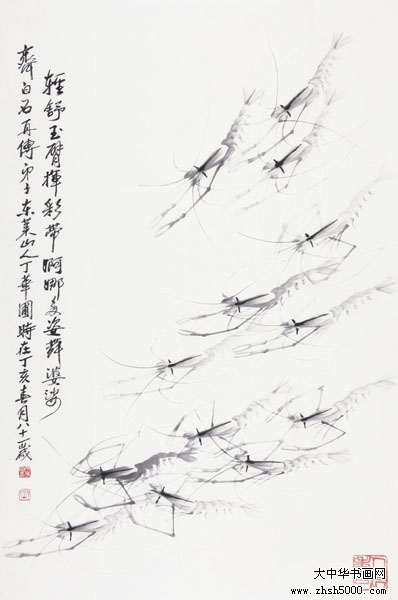 輕舒玉臂揮彩帶婀娜多姿舞婆娑
齊白石再傳弟子东莱山人丁華圃時在丁亥春月八十歲
大中华书画网
www.zhsh5000.com